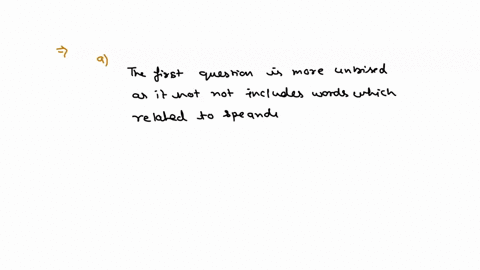 ⇒ a)
The first question is more unbised
as it not not includes words which
related to speands